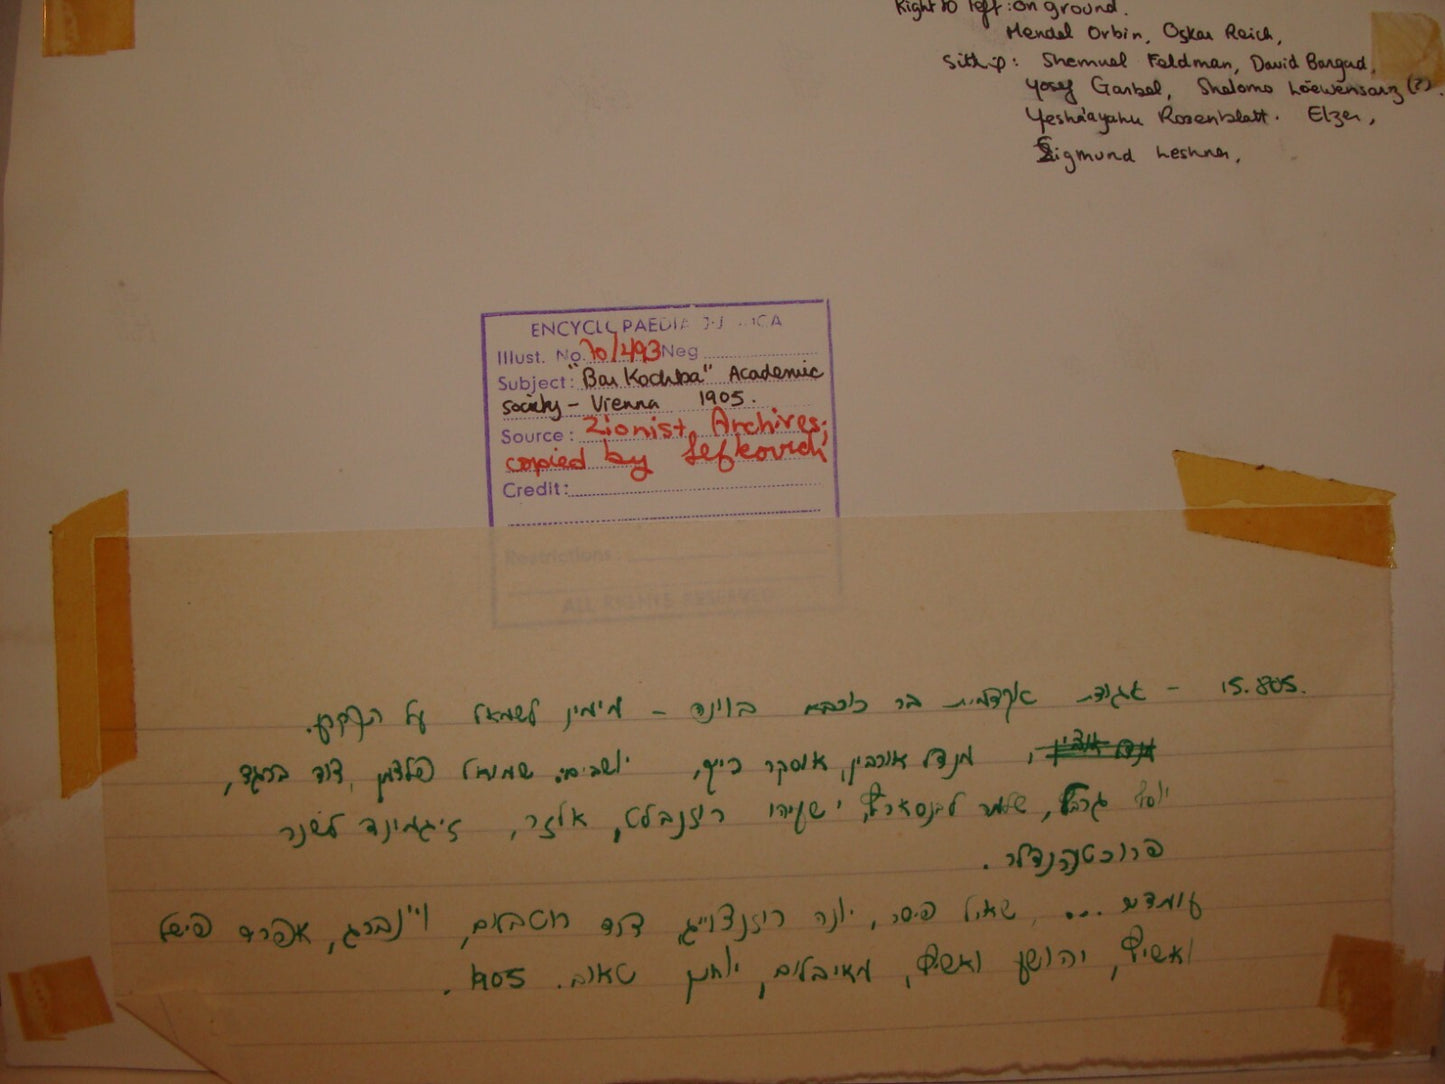 Right to left: on ground.
Mendel Orbin, Oskar Reich,
Sitting: Shemuel Feldman, David Bargad,
Yosef Garbel, Shelomo Loewensarz (?).
Yesha'ayahu Rosenblatt. Elzer,
Sigmund Leshner,
ENCYCLOPAEDIA
Illust. No. 70/493 Neg
Subject: "Bar Kochba" Academic
society - Vienna 1905.
Source: Zionist Archives,
copied by Lefkovich
Credit:
Restrictions:
ALL RIGHTS RESERVED
15.805. - אגודת אקדמית בר כוכבא בוינה - מימין לשמאל על הקרקע.
מנדל אורבין, אוסקר רייך, יושבים: שמואל פלדמן, דוד ברגד,
יוסף גרבל, שלמה ישעיהו רוזנבלט, אלזר, זיגמונד לשנר
עומדים ... שאול פיסר, יונה רוזנצוייג, דוד רוטבלום, ויינברג, אפרים פישל
ואשיץ, יהושע ואשיץ, מאיבלום, יוחנן טאוב. 1905.